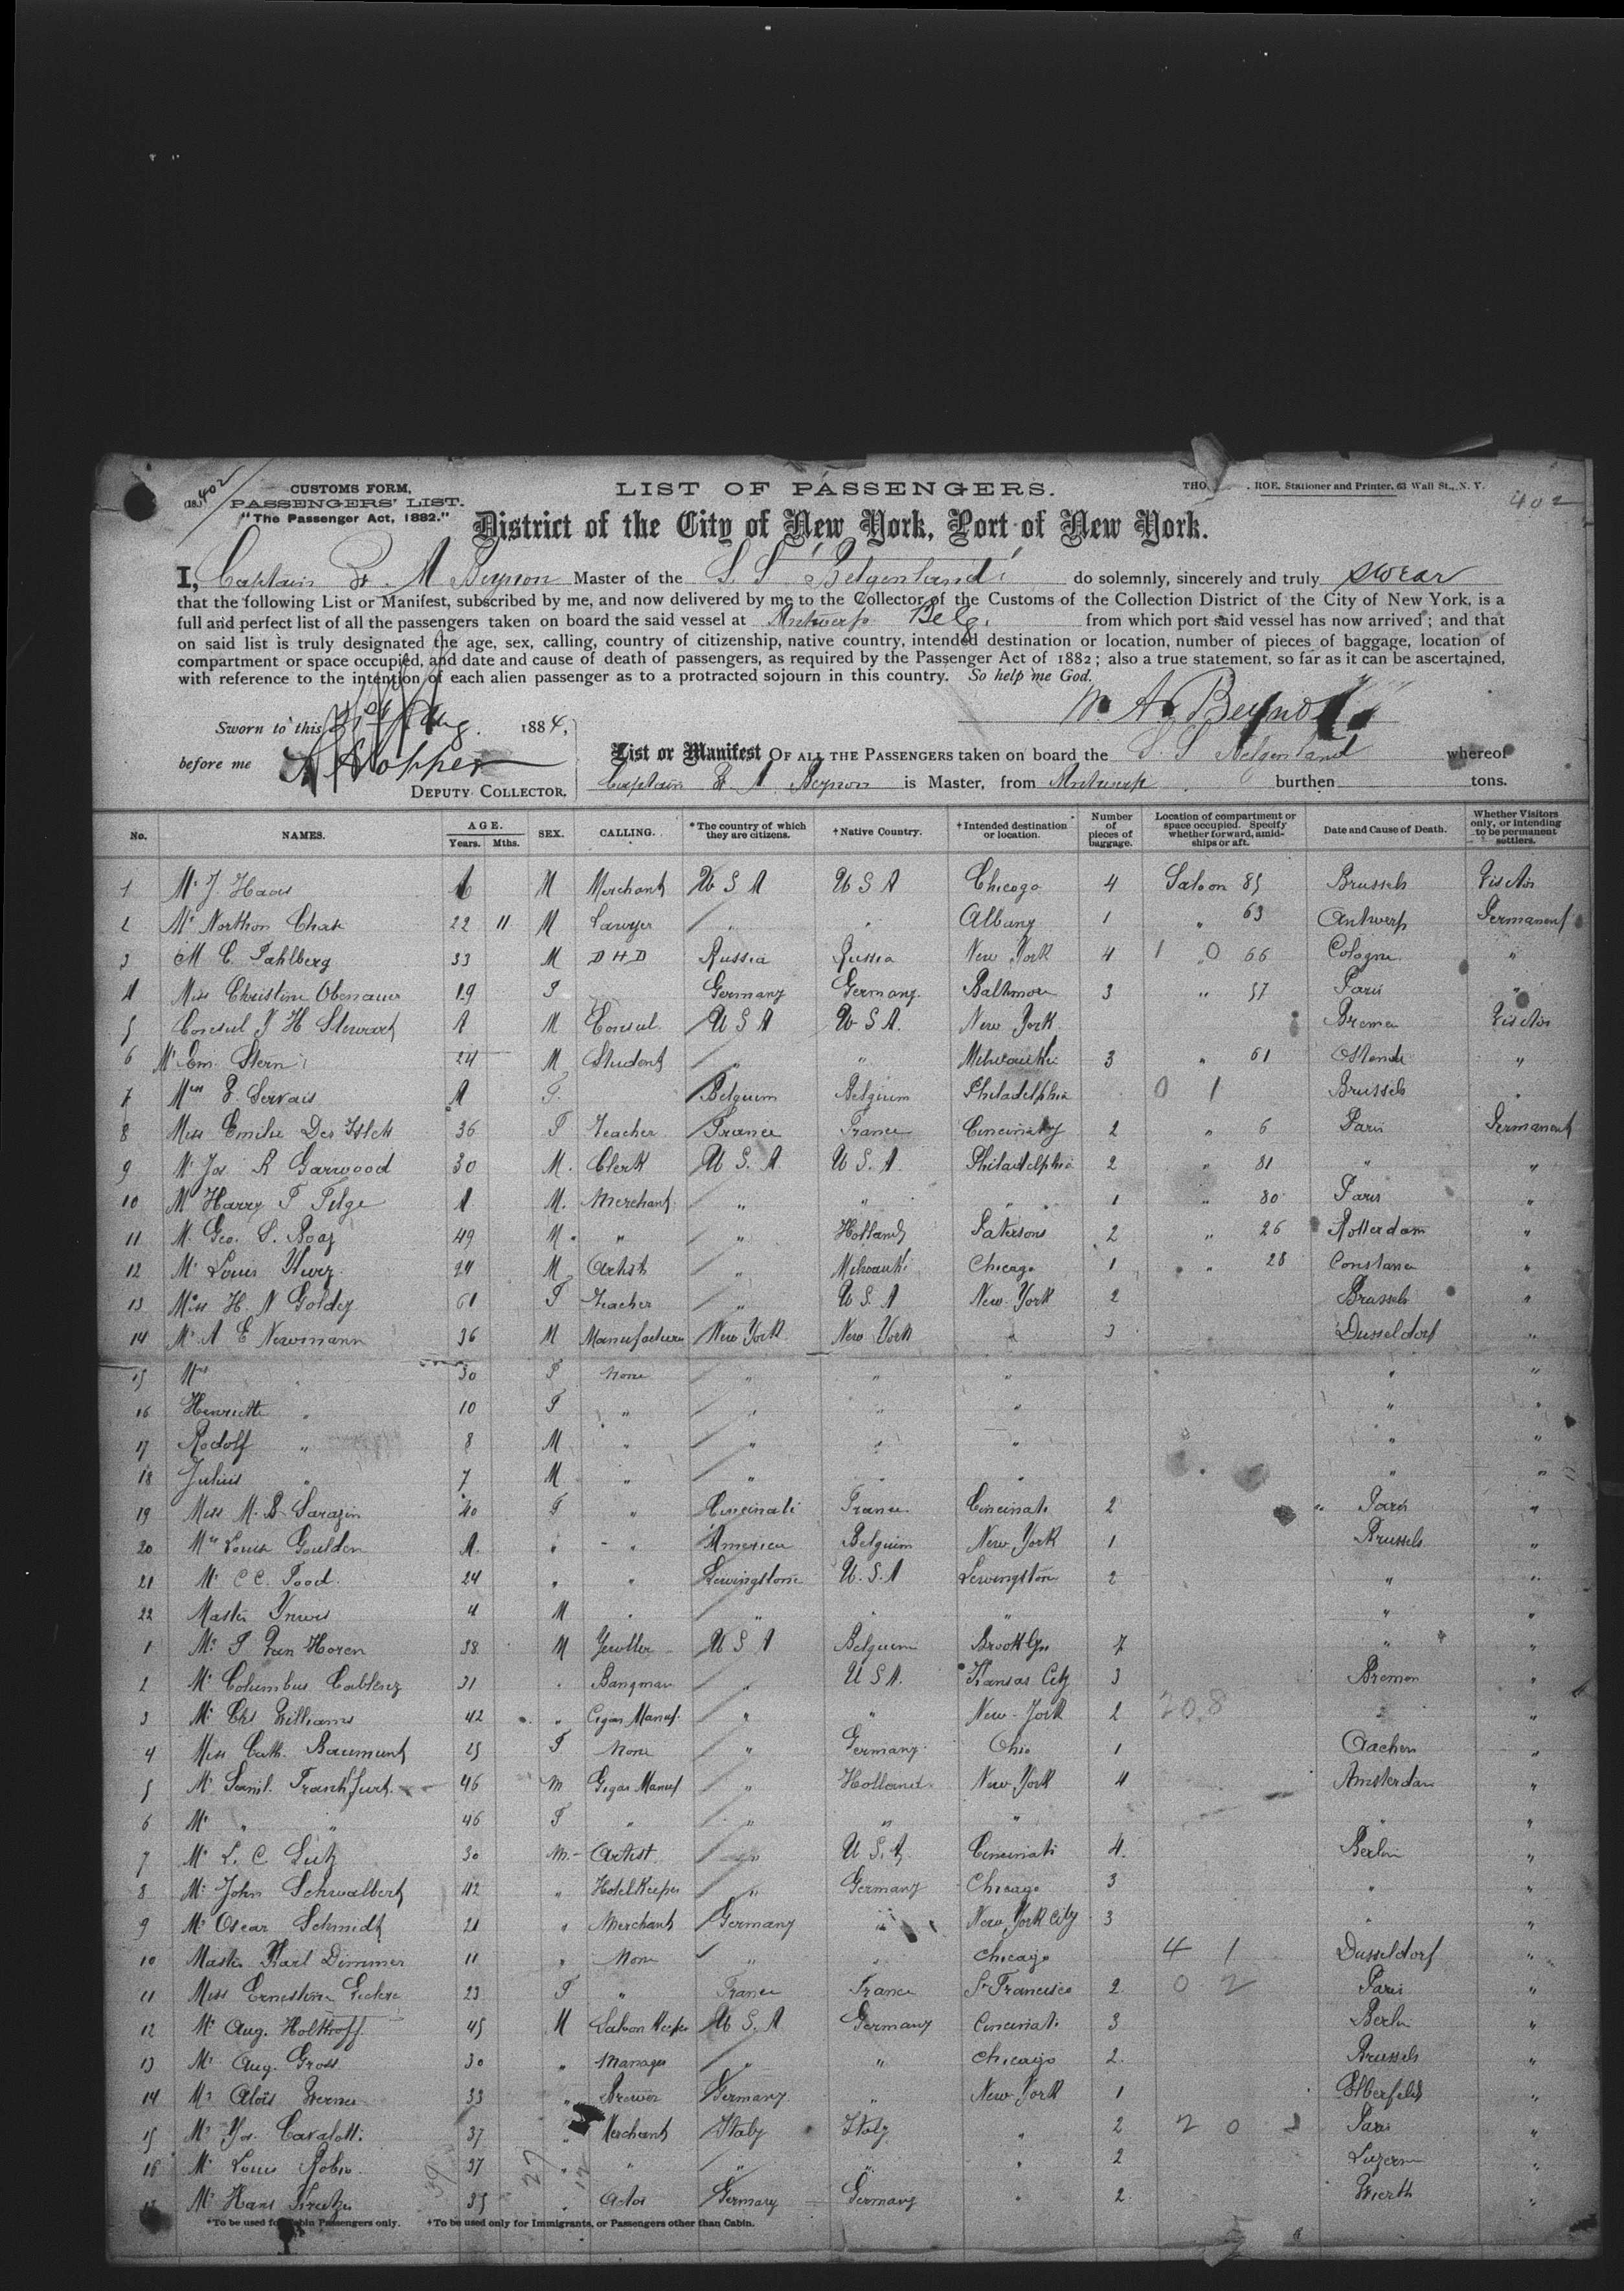 402
(18.) 402
CUSTOMS FORM,
PASSENGERS' LIST.
"The Passenger Act, 1882."
LIST OF PASSENGERS.
THO. ROE, Stationer and Printer, 63 Wall St., N. Y.
District of the City of New York, Port of New York.
I, Captain A Beynon Master of the S. S. Belgenland do solemnly, sincerely and truly swear
that the following List or Manifest, subscribed by me, and now delivered by me to the Collector of the Customs of the Collection District of the City of New York, is a
full and perfect list of all the passengers taken on board the said vessel at Antwerp Belg. from which port said vessel has now arrived; and that
on said list is truly designated the age, sex, calling, country of citizenship, native country, intended destination or location, number of pieces of baggage, location of
compartment or space occupied, and date and cause of death of passengers, as required by the Passenger Act of 1882; also a true statement, so far as it can be ascertained,
with reference to the intention of each alien passenger as to a protracted sojourn in this country. So help me God.
A. Beynon
Sworn to this Aug. 1884,
before me Hopper
DEPUTY COLLECTOR.
List or Manifest OF ALL THE PASSENGERS taken on board the S. S. Belgenland whereof
Captain A. Beynon is Master, from Antwerp burthen tons.
No. NAMES. AGE. Years. Mths. SEX. CALLING. *The country of which they are citizens. †Native Country. †Intended destination or location. Number of pieces of baggage. Location of compartment or space occupied. Specify whether forward, amidships or aft. Date and Cause of Death. Whether Visitors only, or intending to be permanent settlers.
1 Mr J. Haas M Merchant U S A U S A Chicago 4 Saloon 85 Brussels
2 Mr Northon Chase 22 11 M Lawyer " " Albany 1 " 63 Antwerp Permanent
3 M C. Pahlberg 33 M Russia Russia New York 4 1 0 66 Cologne "
4 Miss Christine Obenauer 19 F Germany Germany Baltimore 3 " 57 Paris "
5 Consul H Stewart A M Consul U S A U S A. New York Bremen
6 Mr Em. Stern 24 M Student " " 3 " 61 Ostende "
7 Servais A F. Belgium Belgium Philadelphia 0 1 Brussels "
8 Miss Emilie Des Islets 36 F Teacher France France 2 " 6 Paris Permanent
9 Mr Jos. R Garwood 30 M. Clerk U. S. A. U. S. A. Philadelphia 2 " 81 " "
10 M Harry F A M. Merchant " " " 1 " 80 Paris "
11 M. Geo. S. 49 M. " " Holland Patersons 2 " 26 Rotterdam "
12 Mr Louis 24 M Artist " Chicago 1 " 28 "
13 Miss H. N Goldey 61 F Teacher " U S. A New York 2 Brussels "
14 Mr A E Newmann 36 M Manufacturer New York New York " 3 Dusseldorf "
15 Mrs " 30 F None " " " " "
16 Henriette " 10 F " " " " " "
17 Rodolf " 8 M " " " " " "
18 Julius " 7 M " " " " " "
19 Miss M. B Sarazin 40 F " Cincinati France Cincinati 2 Paris "
20 Goulden A. " " America Belgium New York 1 Brussels "
21 C C. 24 " " U. S. A 2 " "
22 Master 4 M " " " " " "
1 Mr Van Horen 38 M U S A Belgium Brooklyn 7 " "
2 Mr Columbus Coblenz 31 " " U S A. Kansas City 3 Bremen "
3 Mr Chs Williams 42 " Cigar Manuf. " " New-York 2 208 "
4 Miss Cath. 25 F None " Germany Ohio 1 Aachen "
5 Mr Saml. Frankfurt 46 M Manuf " Holland New York 4 Amsterdam "
6 " " 46 F " " " " " "
7 Mr L. C Lutz 30 M. Artist " U S. A Cincinati 4. Berlin "
8 Mr John 42 " HotelKeeper " Germany Chicago 3 " "
9 Mr Oscar Schmidt 21 " Merchant Germany " New York City 3 " "
10 Master Karl Dimmer 11 " None " " Chicago 4 1 Dusseldorf "
11 Miss Ernestine 23 F " France France Sn Francisco 2 0 2 Paris "
12 Mr Aug. Holthoff 45 M U. S. A Germany Cincinati 3 Berlin "
13 Mr Aug. Gross 30 " Manager " " Chicago 2. Brussels "
14 Mr Aloïs Werner 33 " Brewer Germany " New York 1 Elberfeld "
15 Mr Jos. Cavalotti 37 " Merchant Italy Italy " 2 2 0 Paris "
16 Mr Louis 37 " " " " " 2 Luzern "
17 Mr Hans 35 " Actor Germany Germany " 2 "
*To be used for Cabin Passengers only. †To be used only for Immigrants, or Passengers other than Cabin.